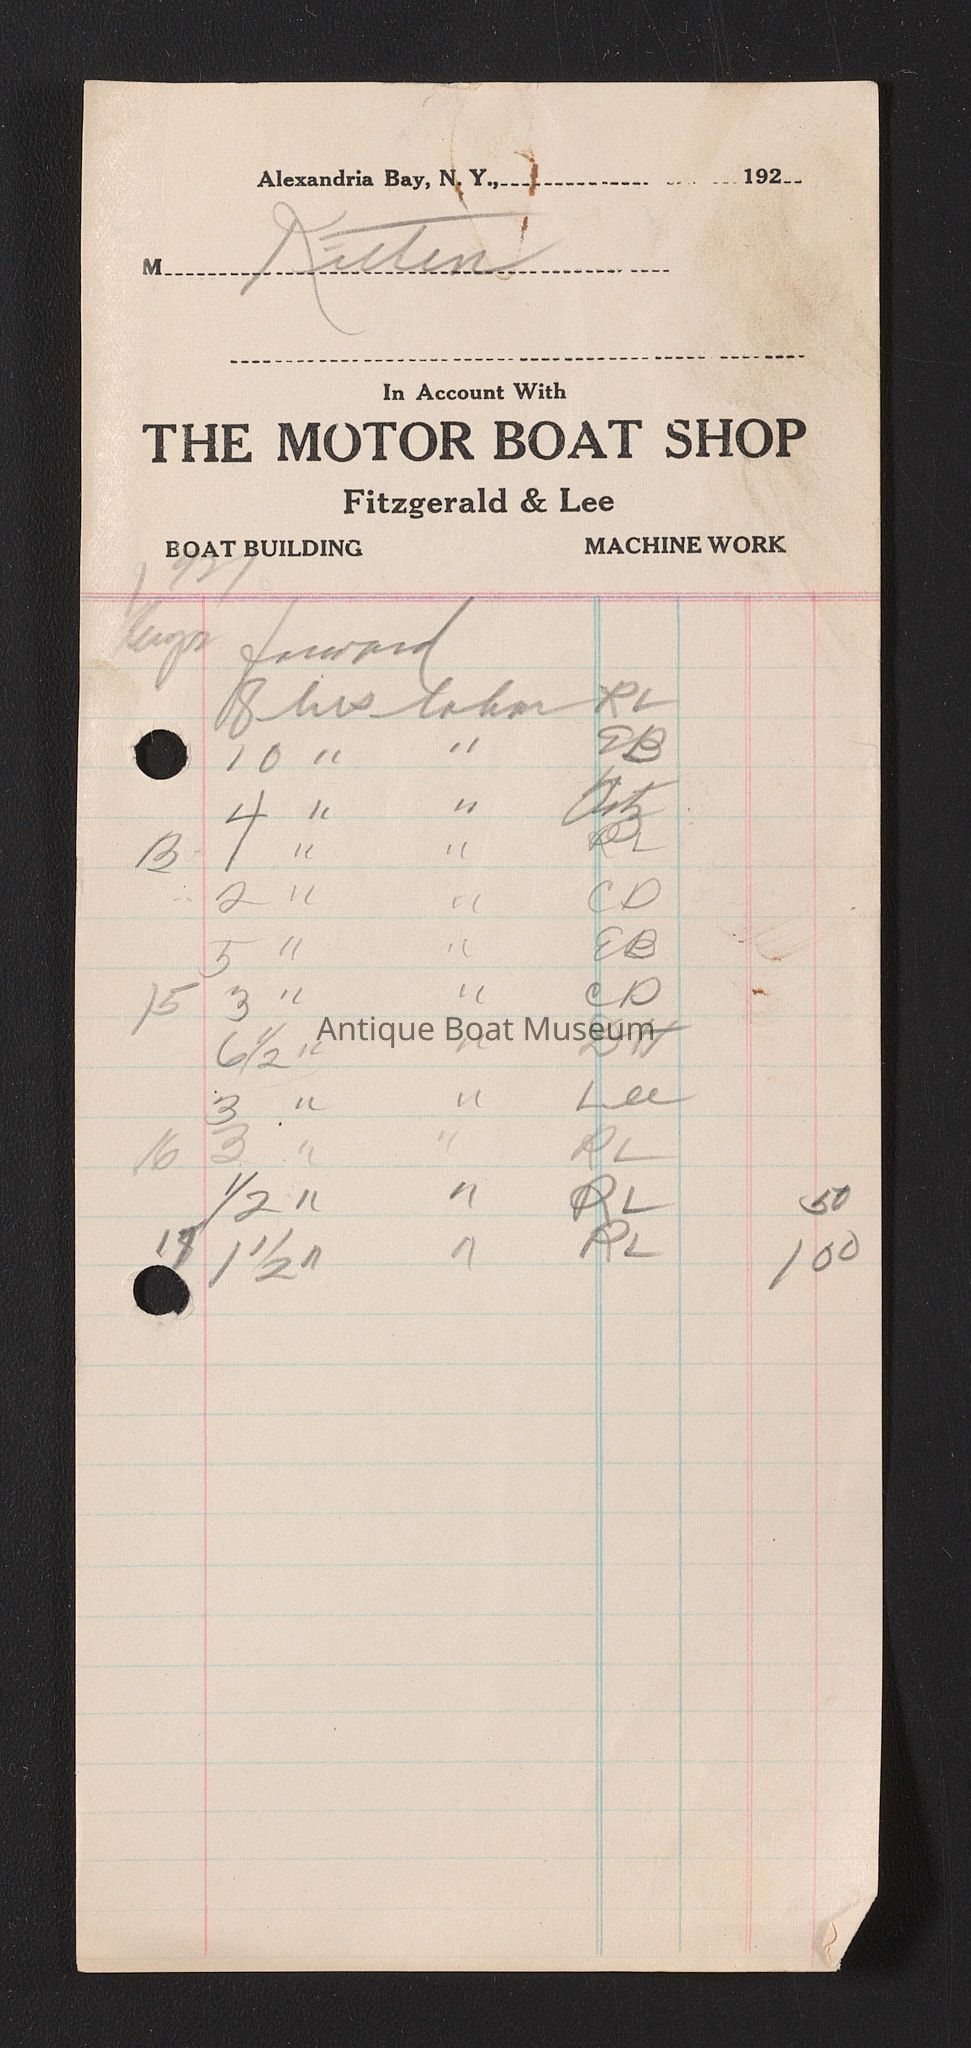 Alexandria Bay, N. Y., 192
M Kitten
In Account With
THE MOTOR BOAT SHOP
Fitzgerald & Lee
BOAT BUILDING MACHINE WORK
1927
forward
8 hrs labor RL
10 " " EB
4 " "
13 1 " " RL
2 " " CD
5 " " EB
15 3 " " CD
Antique Boat Museum
6 1/2 " " DH
3 " " Lee
16 3 " " RL
1/2 " " RL 50
1 1/2 " " RL 1 00